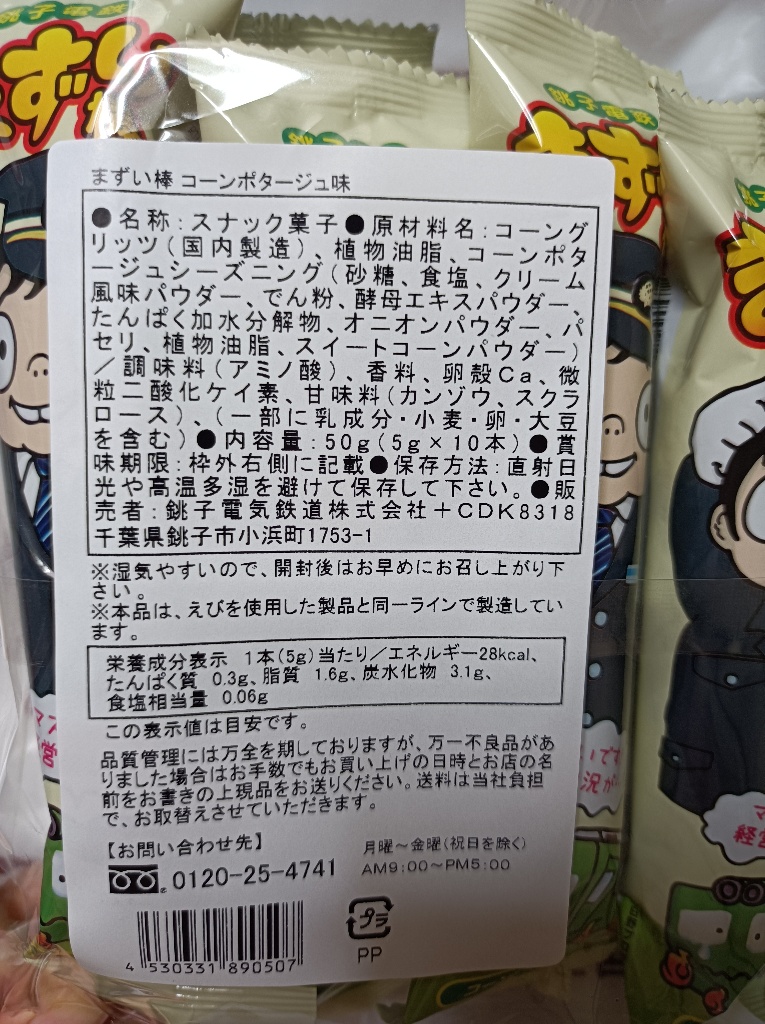 銚子電鉄
まずい
銚子電鉄
まずい棒 コーンポタージュ味
●名称:スナック菓子●原材料名:コーング
リッツ(国内製造)、植物油脂、コーンポタ
ージュシーズニング(砂糖、食塩、クリーム
風味パウダー、でん粉、酵母エキスパウダー、
たんぱく加水分解物、オニオンパウダー、パ
セリ、植物油脂、スイートコーンパウダー)
/調味料(アミノ酸)、香料、卵殻Ca、微
粒二酸化ケイ素、甘味料(カンゾウ、スクラ
ロース)、(一部に乳成分・小麦・卵・大豆
を含む)●内容量:50g(5g×10本)●賞
味期限:枠外右側に記載●保存方法:直射日
光や高温多湿を避けて保存して下さい。●販
売者:銚子電気鉄道株式会社+CDK8318
千葉県銚子市小浜町1753-1
※湿気やすいので、開封後はお早めにお召し上がり下
さい。
※本品は、えびを使用した製品と同一ラインで製造してい
ます。
栄養成分表示 1本(5g)当たり/エネルギー28kcal、
たんぱく質 0.3g、脂質 1.6g、炭水化物 3.1g、
食塩相当量 0.06g
この表示値は目安です。
品質管理には万全を期しておりますが、万一不良品があ
りました場合はお手数でもお買い上げの日時とお店の名
前をお書きの上現品をお送りください。送料は当社負担
で、お取替えさせていただきます。
【お問い合わせ先】
0120-25-4741
月曜~金曜(祝日を除く)
AM9:00~PM5:00
4 530331 890507
プラ
PP